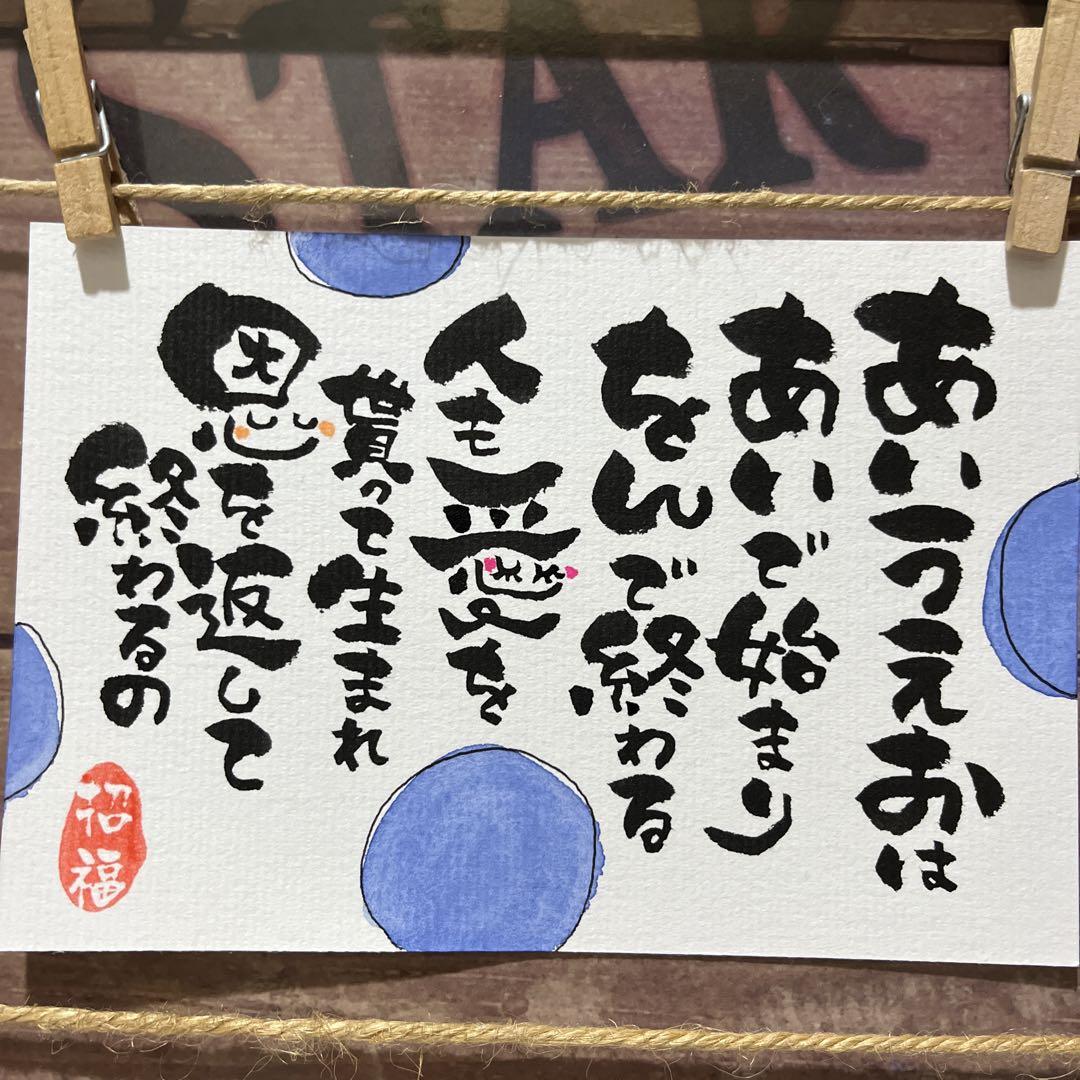 STAR
あいうえおは
あいで始まり
をんで終わる
人も愛を
貰って生まれ
恩を返して
終わるの
招福